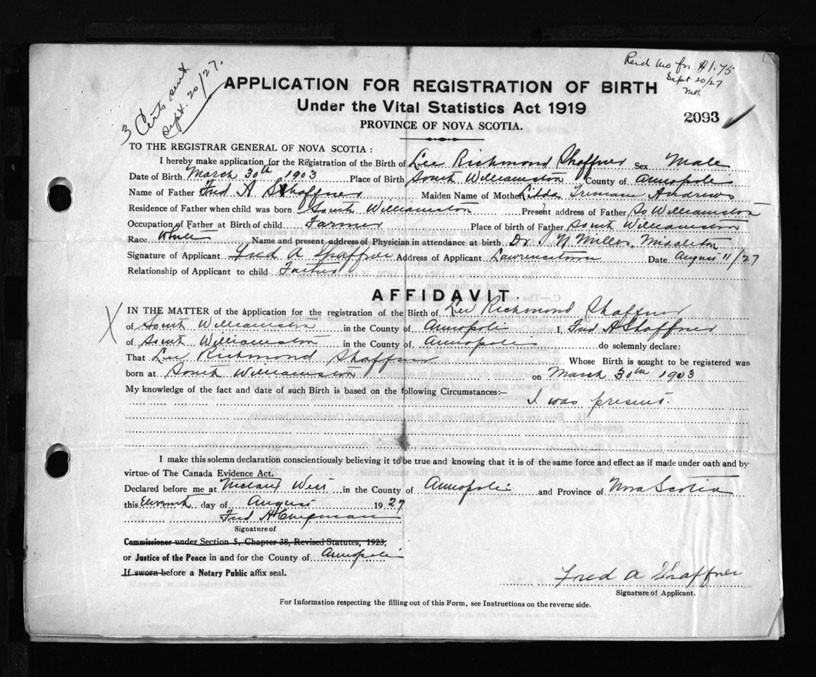 3 Certs sent
Sept. 20/27.
Recd mo for $1.75
Sept 20/27
APPLICATION FOR REGISTRATION OF BIRTH
Under the Vital Statistics Act 1919
PROVINCE OF NOVA SCOTIA.
2093
TO THE REGISTRAR GENERAL OF NOVA SCOTIA:
I hereby make application for the Registration of the Birth of Lee Richmond Shaffner Sex Male
Date of Birth March 30th 1903 Place of Birth South Williamston County of Annapolis
Name of Father Fred A Shaffner Maiden Name of Mother Truman Andrews
Residence of Father when child was born South Williamston Present address of Father So Williamston
Occupation of Father at Birth of child Farmer Place of birth of Father South Williamston
Race White Name and present address of Physician in attendance at birth Dr. Miller, Middleton
Signature of Applicant Fred A Shaffner Address of Applicant Lawrencetown Date August 11/27
Relationship of Applicant to child Father
AFFIDAVIT.
X
IN THE MATTER of the Application for the registration of the Birth of Lee Richmond Shaffner
of South Williamston in the County of Annapolis I, Fred A Shaffner
of South Williamston in the County of Annapolis do solemnly declare:
That Lee Richmond Shaffner Whose Birth is sought to be registered was
born at South Williamston on March 30th 1903
My knowledge of the fact and date of such Birth is based on the following Circumstances:—
I was present.
I make this solemn declaration conscientiously believing it to be true and knowing that it is of the same force and effect as if made under oath and by
virtue of The Canada Evidence Act.
Declared before me at West in the County of Annapolis and Province of Nova Scotia
this Eleventh day of August 1927
Fred H Chipman
Signature of
Commissioner under Section 5, Chapter 38, Revised Statutes, 1923,
or Justice of the Peace in and for the County of Annapolis
If sworn before a Notary Public affix seal.
Fred A Shaffner
Signature of Applicant.
For Information respecting the filling out of this Form, see Instructions on the reverse side.